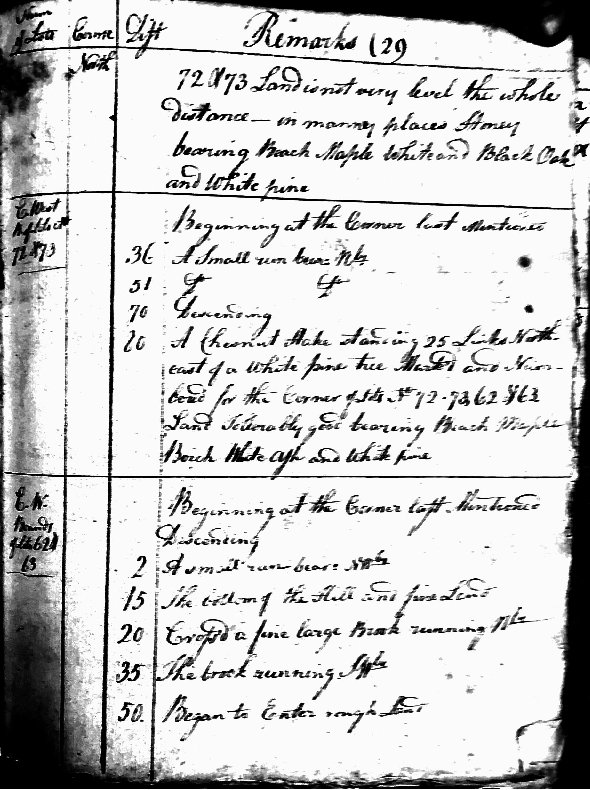 of Lots Course Dist Remarks (29
North
72 & 73 Land is not very level the whole
distance — in manney places Stoney
bearing Beach Maple White and Black Oak
and White pine
E. West
72 & 73
Beginning at the Corner last Mentioned
.36 A Small run bears
51
70 Descending
20 A Chesnut Stake standing 25 Links North
east of a White pine tree Markd and Num-
bered for the Corner of Lots No 72-73, 62 & 63
Land Tolerably good bearing Beach Maple
Birch White ash and White pine
E. W.
63
Beginning at the Corner last Mentioned
Descending
2 A small run bears
15 The bottom of the Hill and fine Land
20 Crossd a fine large Brook running
35 The brook running
50. Began to Enter rough Land